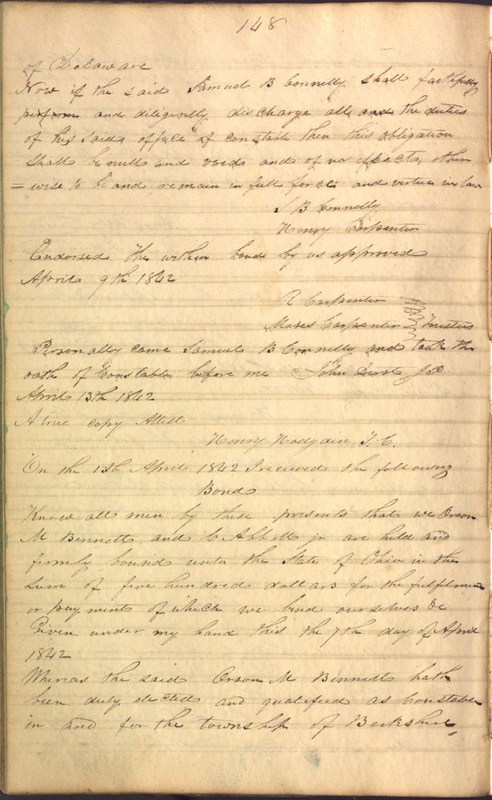 148
of Delaware
Now if the said Samuel B Connelly shall faithfully
perform and diligently discharge all and the duties
of his said office of constable then this obligation
Shall be null and void and of no effect, other
= wise to be and remain in full force and virtue in law
S B Connelly
Henry Carpenter
Endorsed The within bond by us approved
April 9th 1842
R Carpenter
Moses Carpenter Trustees
Personally came Samuel B Connelly and took the
oath of Constable before me John
April 13th 1842
A true copy Attest
Henry Hodgden T. C.
On the 13th April 1842 I received the following
Bond
Know all men by these presents that we Orson
M Bennett and C jr are held and
firmly bound unto the State of Ohio in the
Sum of five hundred dollars for the fulfilment
or payment of which we bind ourselves &c
Given under my hand this the 7th day of April
1842
Whereas the said Orson M Bennett hath
been duly elected and qualified as Constable
in and for the township of Berkshire